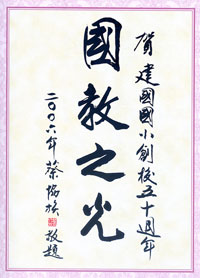 賀建國國小創校五十週年
國教之光
二〇〇六年 蔡協族 敬題